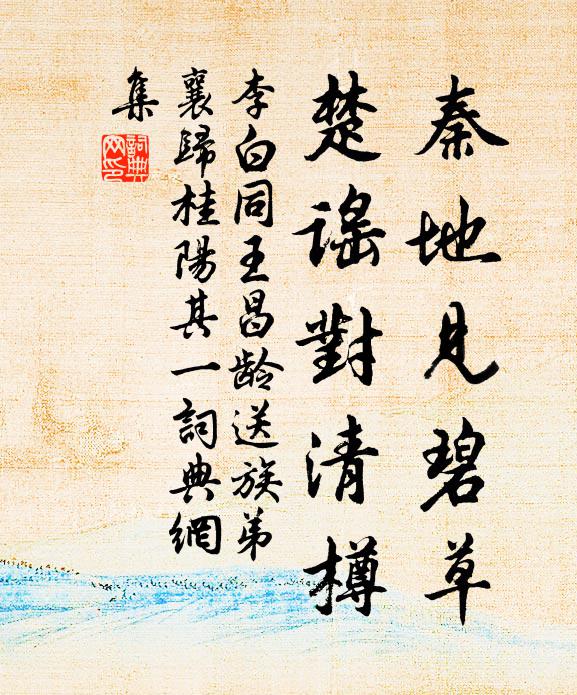 秦地見碧草
楚謠對清樽
李白同王昌龄送族弟
襄歸桂陽其一詞典網
集
詞典
网印